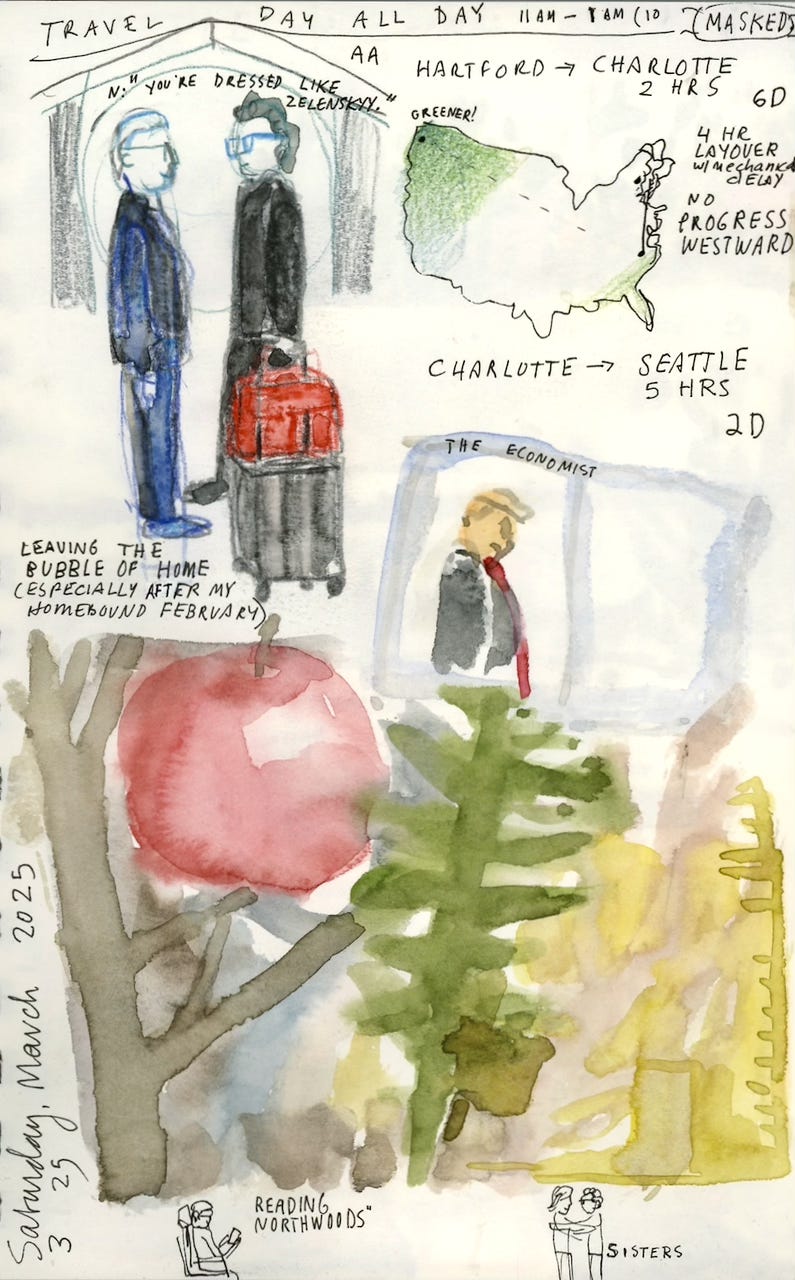 TRAVEL DAY ALL DAY 11AM - 1AM (10
MASKED
AA
N: "YOU'RE DRESSED LIKE
ZELENSKYY."
HARTFORD → CHARLOTTE
2 HRS
6D
GREENER!
4 HR
LAYOVER
w/mechanical
DELAY
NO
PROGRESS
WESTWARD
CHARLOTTE → SEATTLE
5 HRS
2D
THE ECONOMIST
LEAVING THE
BUBBLE OF HOME
(ESPECIALLY AFTER MY
HOMEBOUND FEBRUARY)
Saturday, March 2025
3 25
READING
NORTHWOODS"
SISTERS